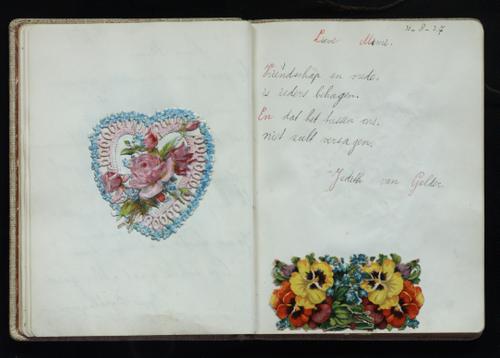 11-8-27
Lieve Mimi.
Vriendschap en vrede.
is ieders behagen.
En dat het tussen ons.
niet zult versagen.
Judith van Gelder.